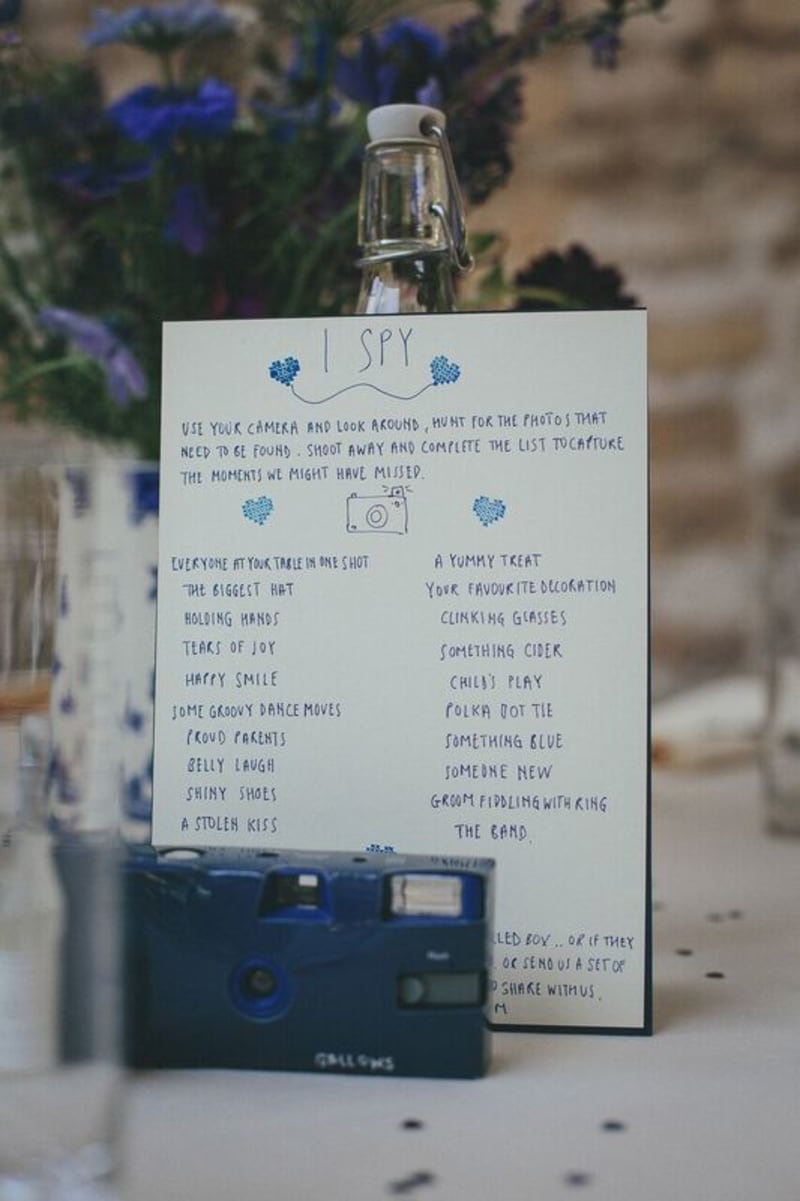 I SPY
USE YOUR CAMERA AND LOOK AROUND, HUNT FOR THE PHOTOS THAT
NEED TO BE FOUND. SHOOT AWAY AND COMPLETE THE LIST TO CAPTURE
THE MOMENTS WE MIGHT HAVE MISSED.
EVERYONE AT YOUR TABLE IN ONE SHOT
THE BIGGEST HAT
HOLDING HANDS
TEARS OF JOY
HAPPY SMILE
SOME GROOVY DANCE MOVES
PROUD PARENTS
BELLY LAUGH
SHINY SHOES
A STOLEN KISS
A YUMMY TREAT
YOUR FAVOURITE DECORATION
CLINKING GLASSES
SOMETHING CIDER
CHILD'S PLAY
POLKA DOT TIE
SOMETHING BLUE
SOMEONE NEW
GROOM FIDDLING WITH RING
THE BAND.
LLED BOX .. OR IF THEY
. OR SEND US A SET OF
D SHARE WITH US.
M
Flash
GALLOWS